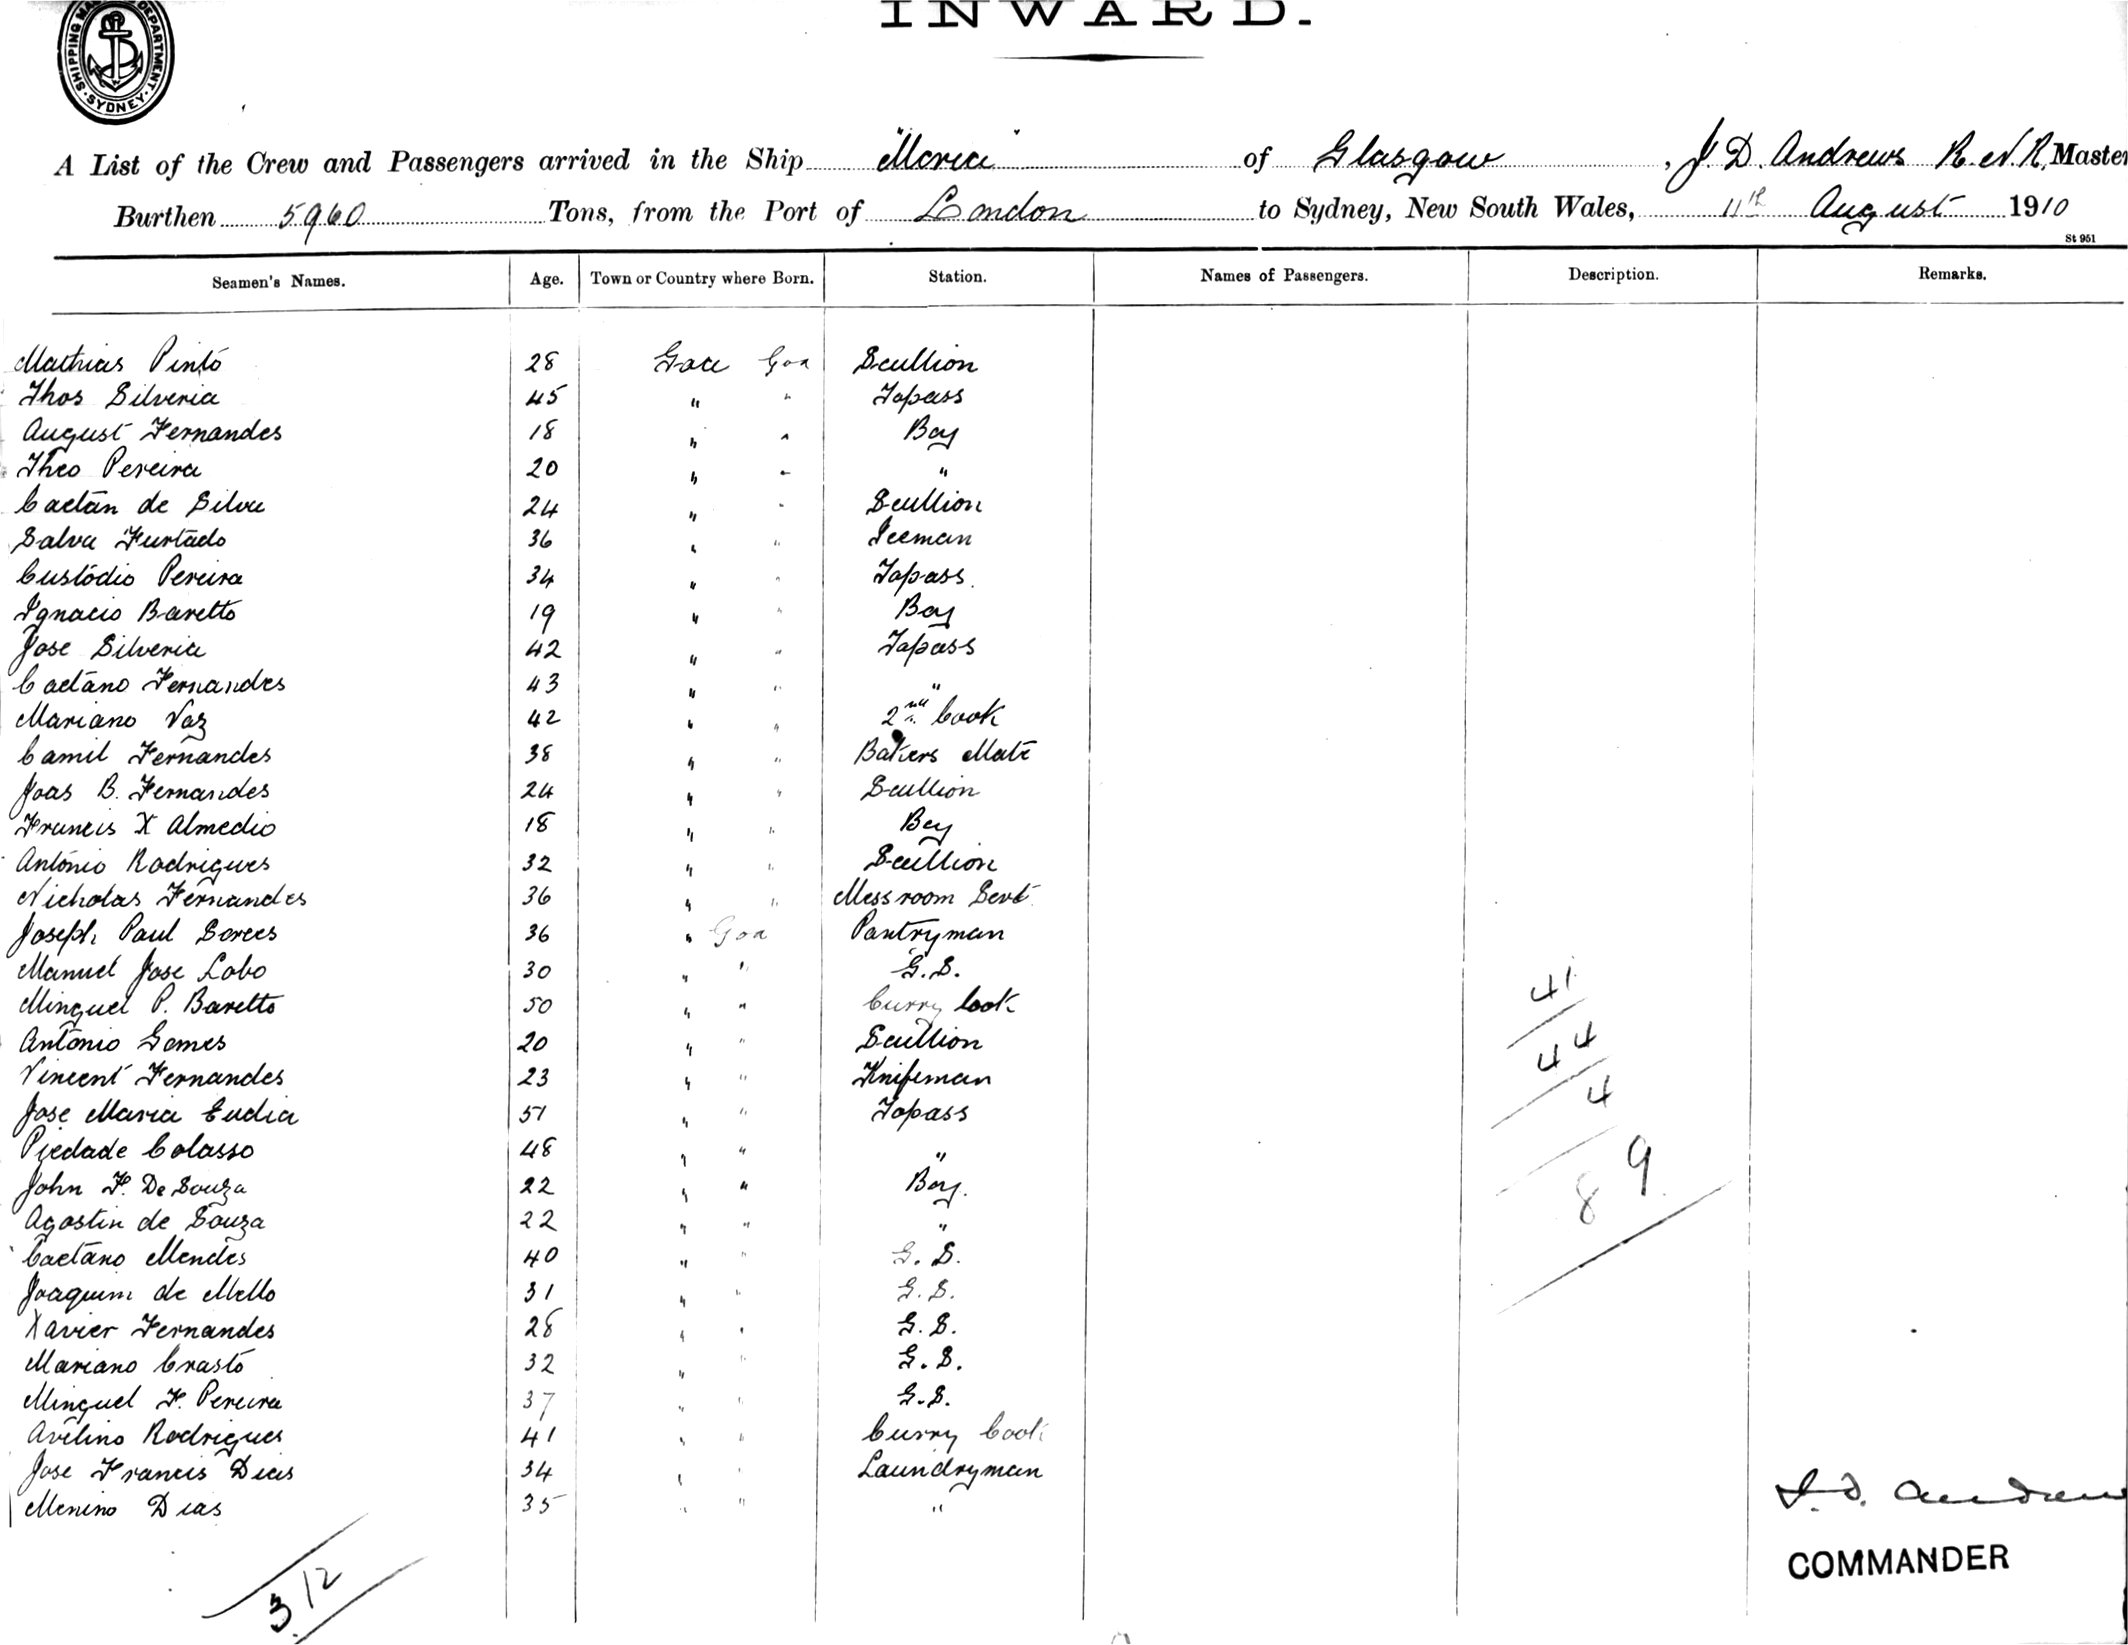 INWARD.
SHIPPING MA DEPARTMENT. SYDNEY.
A List of the Crew and Passengers arrived in the Ship "Morea" of Glasgow, J. D. Andrews R.N.R. Master
Burthen 5960 Tons, from the Port of London to Sydney, New South Wales, 11th August 1910
St 951
Seamen's Names. Age. Town or Country where Born. Station. Names of Passengers. Description. Remarks.
Mathias Pinto 28 Goa Goa Scullion
Thos Silveria 45 " " Topass
August Fernandes 18 " " Boy
Theo Pereira 20 " " "
Caetan de Silva 24 " " Scullion
Salva Furtado 36 " " Iceman
Custodio Pereira 34 " " Topass.
Ignacio Baretto 19 " " Boy
Jose Silveria 42 " " Topass
Caetano Fernandes 43 " " "
Mariano Vaz 42 " " 2nd Cook
Camil Fernandes 38 " " Bakers Mate
Joas B. Fernandes 24 " " Scullion
Francis X Almedio 18 " " Boy
Antonio Rodrigues 32 " " Scullion
Nicholas Fernandes 36 " " Messroom Servt
Joseph Paul Sorees 36 " Goa Pantryman
Manuel Jose Lobo 30 " " G.S.
Minguel P. Baretto 50 " " Curry Cook
Antonio Gomes 20 " " Scullion
Vincent Fernandes 23 " " Knifeman
Jose Maria Eudia 51 " " Topass
Piedade Colasso 48 " " "
John F. De Souza 22 " " Boy.
Agostin de Souza 22 " " "
Caetano Mendes 40 " " G.S.
Joaquim de Mello 31 " " G.S.
Xavier Fernandes 28 " " G.S.
Mariano Crasto 32 " " G.S.
Minguel F. Pereira 37 " " G.S.
Avelino Rodrigues 41 " " Curry Cook
Jose Francis Dias 34 " " Laundryman
Menino Dias 35 " " "
41
44
4
89
312
J. D. Andrew
COMMANDER